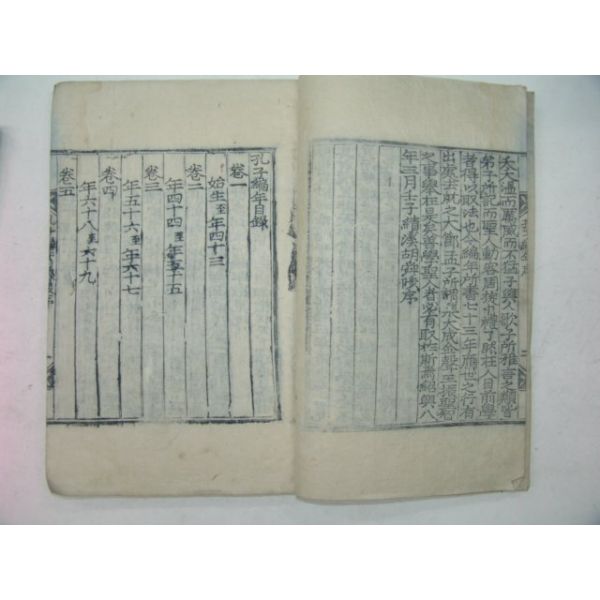 夭夭溫而厲威而不猛子與人歌之所推言之類皆
弟子所記而聖人動容周旋中禮了然在人目前學
者得以取法也今編年所書七十三年應世之行有
出處去就之大節孟子所謂大成金聲玉振始
之事擧在是矣善學聖人者必有取於斯焉紹興八
年三月壬子績溪胡舜陟序
孔子編年目錄
卷一
始生至年四十三
卷二
年四十四至年五十五
卷三
年五十六至年六十七
卷四
年六十八至六十九
卷五